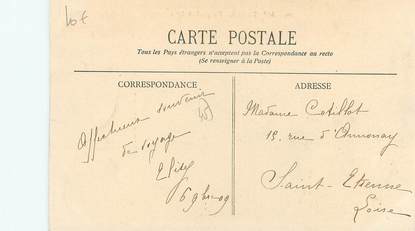 10€
CARTE POSTALE
Tous les Pays étrangers n'acceptent pas la Correspondance au recto
(Se renseigner à la Poste)
CORRESPONDANCE
Affectueux souvenir
de voyage
6 9bre 09
ADRESSE
Madame Cotillot
15, rue d'Annonay
Saint-Etienne
Loire